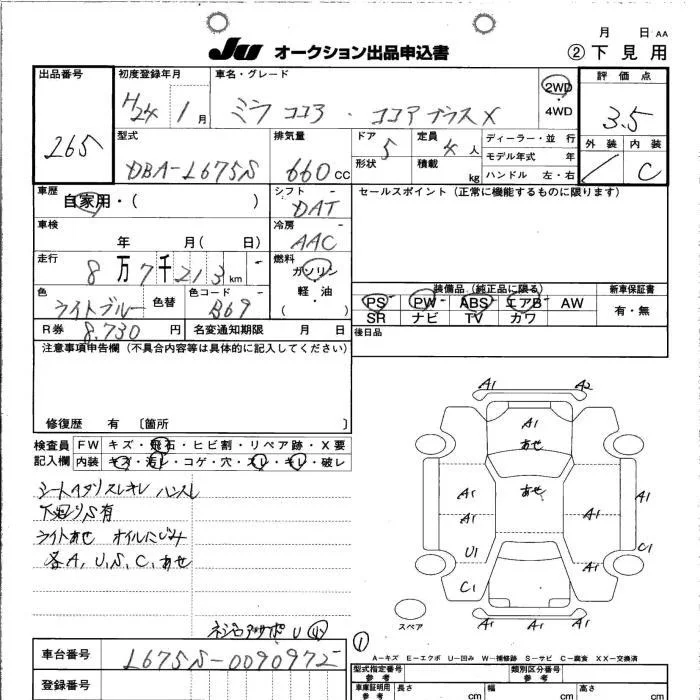 月 日 AA
JU オークション出品申込書
② 下見用
出品番号
265
初度登録年月
H24 1月
車名・グレード
ミラ ココア・ココアプラスX
2WD
・
4WD
評価点
3.5
外装 内装
C
型式
DBA-L675S
排気量
660cc
ドア 5
形状
定員 4人
積載 kg
ディーラー・並行
モデル年式 年
ハンドル 左・右
車歴
自家用・( )
シフト
DAT
セールスポイント (正常に機能するものに限ります)
車検
年 月( 日)
冷房
AAC
走行
8万7千213km
燃料
ガソリン
軽・油
( )
色
ライトブルー
色替
色コード
B69
装備品 (純正品に限る)
PS PW ABS エアB AW
SR ナビ TV カワ
新車保証書
有・無
R券 8,730円
名変通知期限 月 日
後日品
注意事項申告欄 (不具合内容等は具体的に記入してください)
修復歴 有 〔箇所 〕
検査員
記入欄
FW キズ・飛石・ヒビ割・リペア跡・X要
内装 キズ・汚レ・コゲ・穴・スレ・キレ・破レ
シートヘタリスレキレ ハンスレ
下廻りS有
ライトあせ オイルにじみ
各A,U,S,C,あせ
A1
A2
A1
あせ
あせ
A1
A1
A1
A1
U1
C1
A1
C1
A1 A1 A1
スペア
①
A-キズ E-エクボ U-凹み W-補修跡 S-サビ C-腐食 XX-交換済
車台番号
L675S-0090972
登録番号
型式指定番号
参考
類別区分番号
参考
車庫証明用
参考
長さ cm
幅 cm
高さ cm